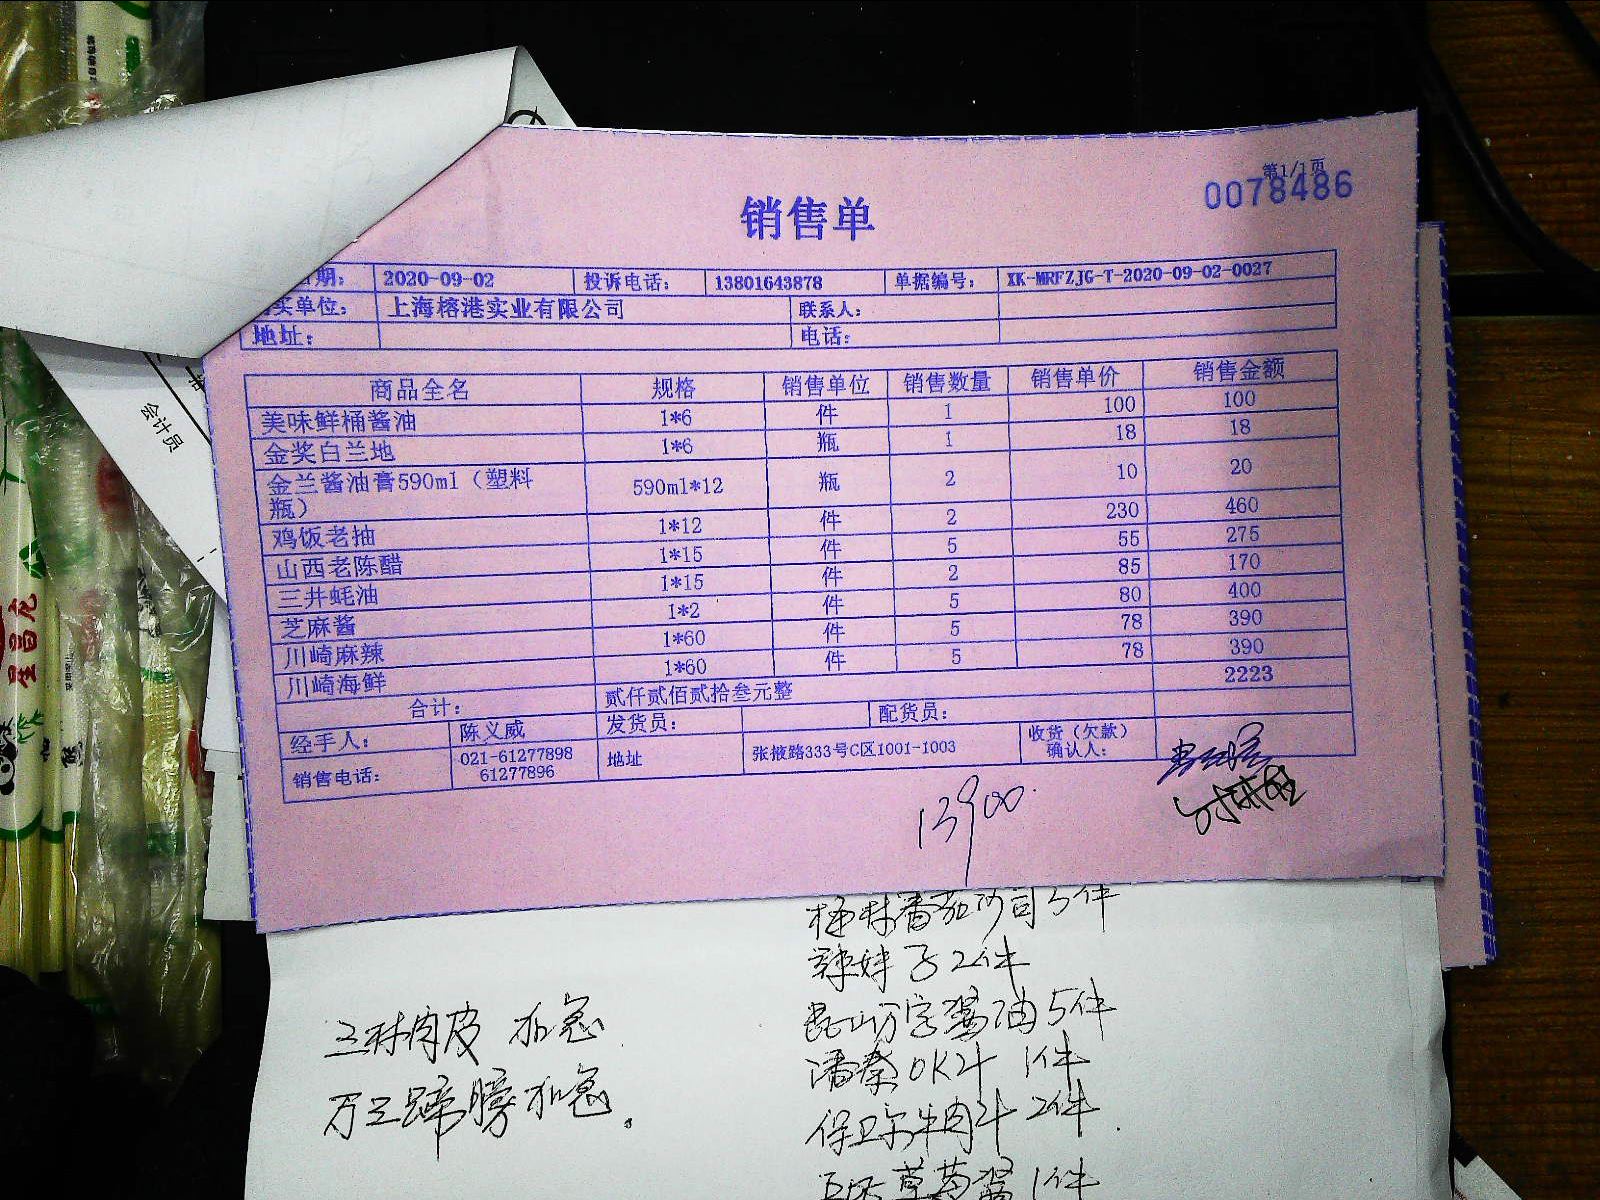 第1/1页
0078486
销售单
日期： 2020-09-02 投诉电话： 13801643878 单据编号： XK-MRFZJG-T-2020-09-02-0027
买单位： 上海榕港实业有限公司 联系人：
地址： 电话：
商品全名 规格 销售单位 销售数量 销售单价 销售金额
美味鲜桶酱油 1*6 件 1 100 100
金奖白兰地 1*6 瓶 1 18 18
金兰酱油膏590ml（塑料
瓶） 590ml*12 瓶 2 10 20
鸡饭老抽 1*12 件 2 230 460
山西老陈醋 1*15 件 5 55 275
三井蚝油 1*15 件 2 85 170
芝麻酱 1*2 件 5 80 400
川崎麻辣 1*60 件 5 78 390
川崎海鲜 1*60 件 5 78 390
合计： 贰仟贰佰贰拾叁元整 2223
经手人： 陈义威 发货员： 配货员：
销售电话： 021-61277898
61277896
地址 张掖路333号C区1001-1003 收货（欠款）
确认人：
13900
会计员
番茄沙司5件
辣妹子2件
昆山分字酱油5件
潘泰OK汁 1件
保卫尔牛肉汁2件
草莓酱1件
三林肉皮 加急
万三蹄膀加急.